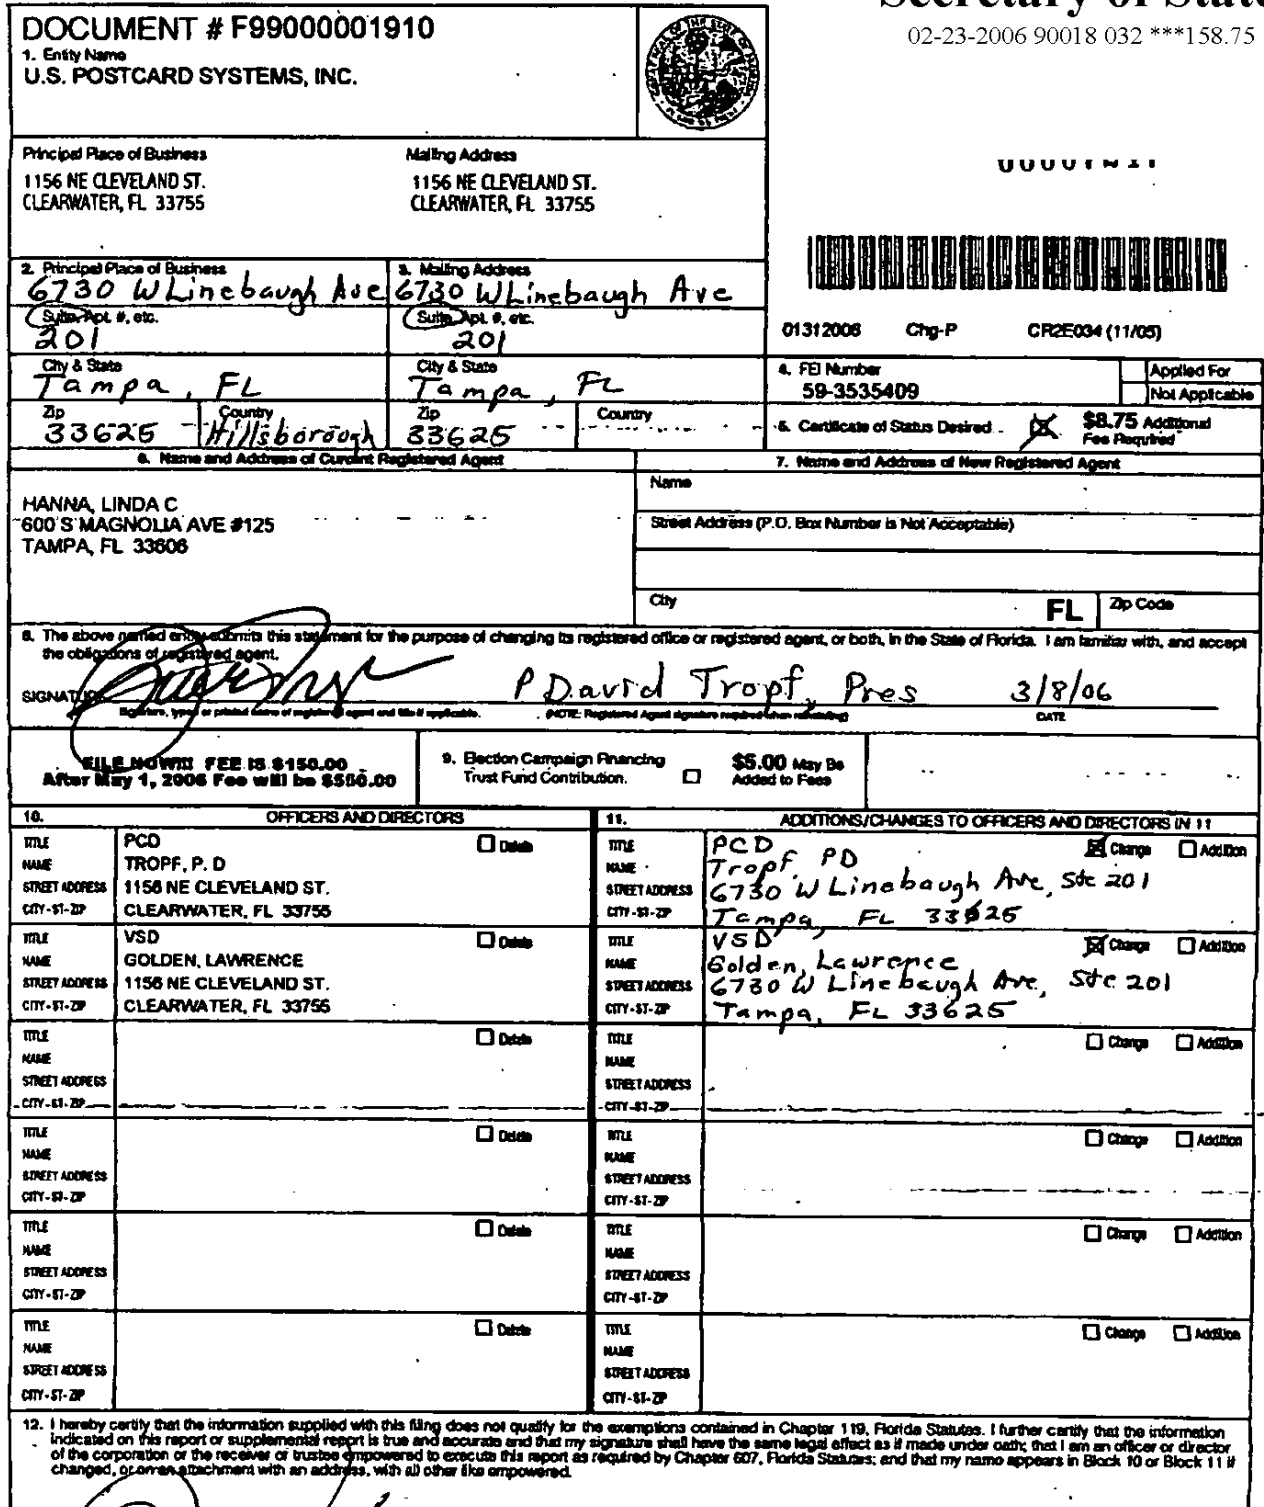 DOCUMENT # F99000001910
1. Entity Name
U.S. POSTCARD SYSTEMS, INC.
02-23-2006 90018 032 ***158.75
Principal Place of Business
1156 NE CLEVELAND ST.
CLEARWATER, FL 33755
Mailing Address
1156 NE CLEVELAND ST.
CLEARWATER, FL 33755
2. Principal Place of Business
6730 W Linebaugh Ave
Suite, Apt. #, etc.
201
City & State
Tampa, FL
Zip
33625
Country
Hillsborough
3. Mailing Address
6730 W Linebaugh Ave
Suite, Apt. #, etc.
201
City & State
Tampa, FL
Zip
33625
Country
01312006 Chg-P CR2E034 (11/05)
4. FEI Number
59-3535409
Applied For
Not Applicable
5. Certificate of Status Desired
$8.75 Additional
Fee Required
6. Name and Address of Current Registered Agent
HANNA, LINDA C
600 S MAGNOLIA AVE #125
TAMPA, FL 33606
7. Name and Address of New Registered Agent
Name
Street Address (P.O. Box Number is Not Acceptable)
City
FL
Zip Code
8. The above named entity submits this statement for the purpose of changing its registered office or registered agent, or both, in the State of Florida. I am familiar with, and accept
the obligations of registered agent.
SIGNATURE
P David Tropf, Pres 3/8/06
Signature, typed or printed name of registered agent and title if applicable. (NOTE: Registered Agent signature required when reinstating) DATE
FILE NOW!!! FEE IS $150.00
After May 1, 2006 Fee will be $550.00
9. Election Campaign Financing
Trust Fund Contribution.
$5.00 May Be
Added to Fees
10. OFFICERS AND DIRECTORS
TITLE PCD Delete
NAME TROPF, P. D
STREET ADDRESS 1156 NE CLEVELAND ST.
CITY-ST-ZIP CLEARWATER, FL 33755
TITLE VSD Delete
NAME GOLDEN, LAWRENCE
STREET ADDRESS 1156 NE CLEVELAND ST.
CITY-ST-ZIP CLEARWATER, FL 33755
TITLE Delete
NAME
STREET ADDRESS
CITY-ST-ZIP
TITLE Delete
NAME
STREET ADDRESS
CITY-ST-ZIP
TITLE Delete
NAME
STREET ADDRESS
CITY-ST-ZIP
TITLE Delete
NAME
STREET ADDRESS
CITY-ST-ZIP
11. ADDITIONS/CHANGES TO OFFICERS AND DIRECTORS IN 11
TITLE PCD Change Addition
NAME Tropf, PD
STREET ADDRESS 6730 W Linebaugh Ave, Ste 201
CITY-ST-ZIP Tampa, FL 33625
TITLE VSD Change Addition
NAME Golden, Lawrence
STREET ADDRESS 6730 W Linebaugh Ave, Ste 201
CITY-ST-ZIP Tampa, FL 33625
TITLE Change Addition
NAME
STREET ADDRESS
CITY-ST-ZIP
TITLE Change Addition
NAME
STREET ADDRESS
CITY-ST-ZIP
TITLE Change Addition
NAME
STREET ADDRESS
CITY-ST-ZIP
TITLE Change Addition
NAME
STREET ADDRESS
CITY-ST-ZIP
12. I hereby certify that the information supplied with this filing does not qualify for the exemptions contained in Chapter 119, Florida Statutes. I further certify that the information
indicated on this report or supplemental report is true and accurate and that my signature shall have the same legal effect as if made under oath; that I am an officer or director
of the corporation or the receiver or trustee empowered to execute this report as required by Chapter 607, Florida Statutes; and that my name appears in Block 10 or Block 11 if
changed, or on an attachment with an address, with all other like empowered.